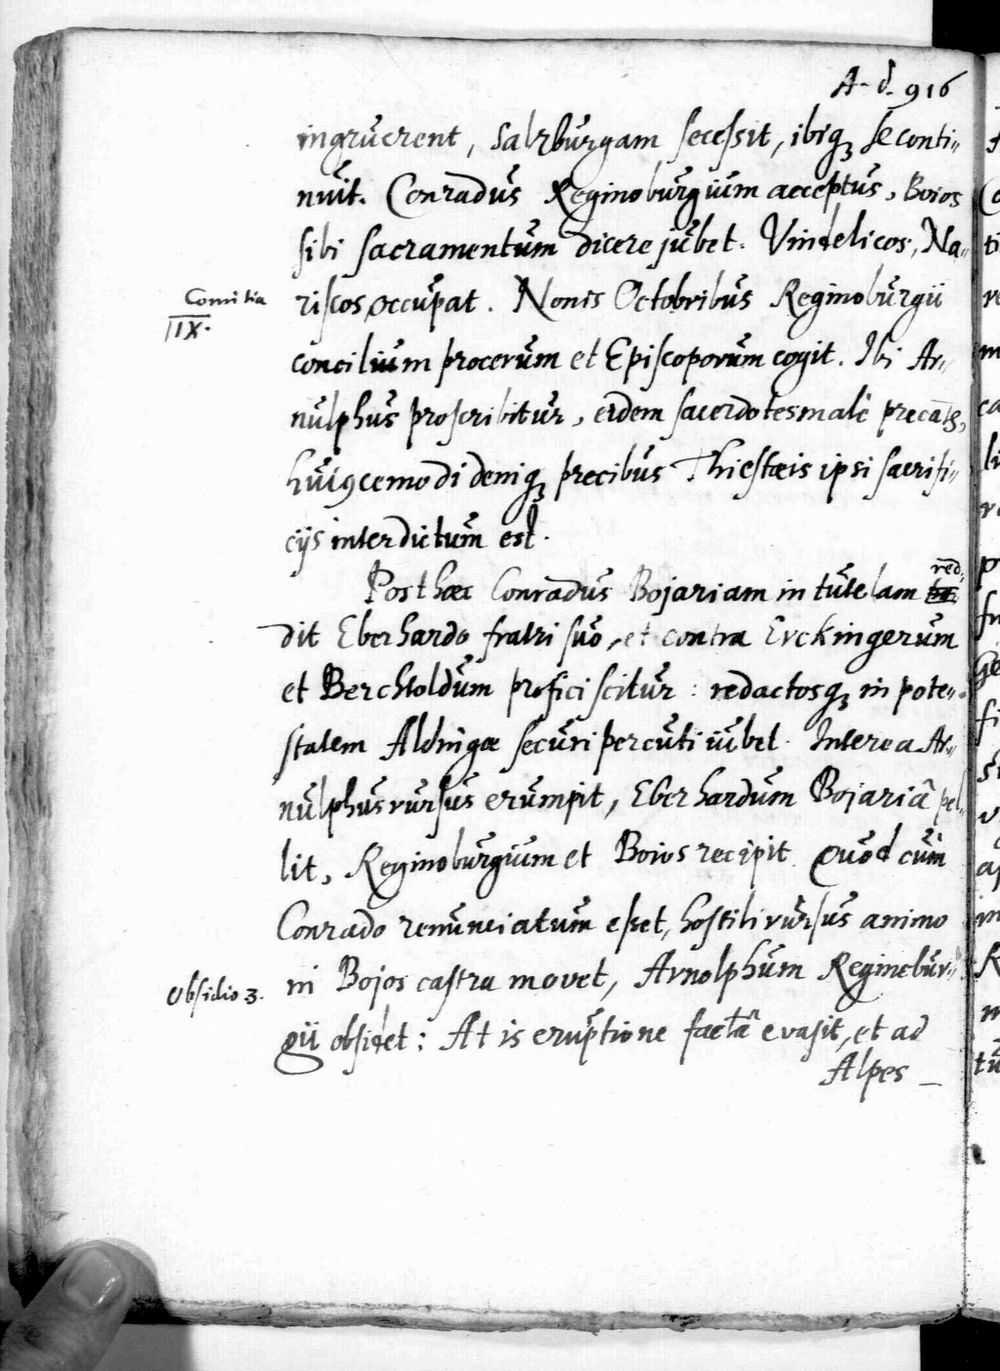 A. d. 916
ingruerent, Salzburgam secessit, ibiq3 se conti-
nuit. Conradus Reginoburgium acceptus, Boios
sibi sacramentum dicere jubet. Vindelicos, Na-
Comitia
IIX.
riscos occupat. Nonis Octobribus Reginoburgii
concilium procerum et Episcoporum cogit. Ibi Ar-
nulphus proscribitur, eidem sacerdotes malè
huiꝯcemodi deniq3 precibus Thiestæis ipsi sacrifi-
cijs interdictum est.
Post hæc Conradus Bojariam in tutelam red-
dit Eberhardo fratri suo, et contra Erckingerum
et Bercktoldum proficiscitur: redactosq3 in pote-
statem Aldingæ securi percuti iubet. Interea Ar-
nulphus rursus erumpit, Eberhardum Bojariâ pel-
lit, Reginoburgium et Boios recipit. Quod cùm
Conrado renunciatum esset, hostili rursus animo
in Bojos castra movet, Arnolphum Reginobur-
Obsidio 3.
gii obsidet: At is eruptione factâ evasit, et ad
Alpes